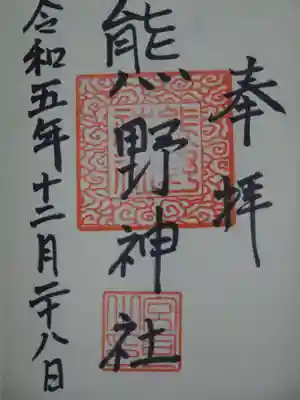 奉拝
熊野神社
令和五年十二月二十八日